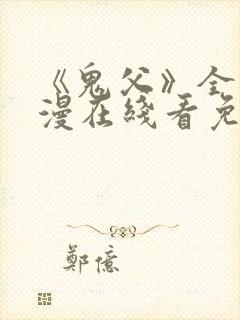 《鬼父》全
漫在线看免
鄭億